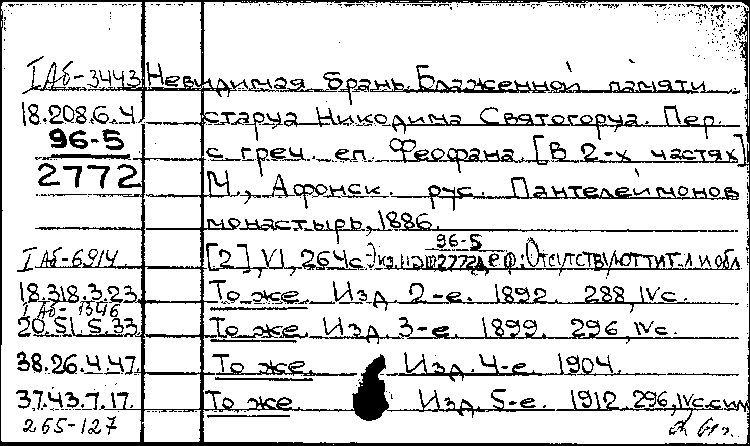 I Аб-3443 Невидимая брань. Блаженной памяти
18.208.6.4. старца Никодима Святогорца. Пер.
96-5 с греч. еп. Феофана. [В 2-х частях]
2772 М., Афонск. рус. Пантелеймонов
монастырь, 1886.
I Аб-6914 [2], VI, 264с. Экз. 96-5/2772 деф: Отсутствуют тит. л. и обл
18.318.3.23. То же. Изд. 2-е. 1892. 288, IV с.
I Аб-1346
20.51.5.33. То же. Изд. 3-е. 1899. 296, IV с.
38.26.4.47. То же. Изд. 4-е. 1904.
37.43.7.17. То же. Изд. 5-е. 1912. 296, IV с.
265-127